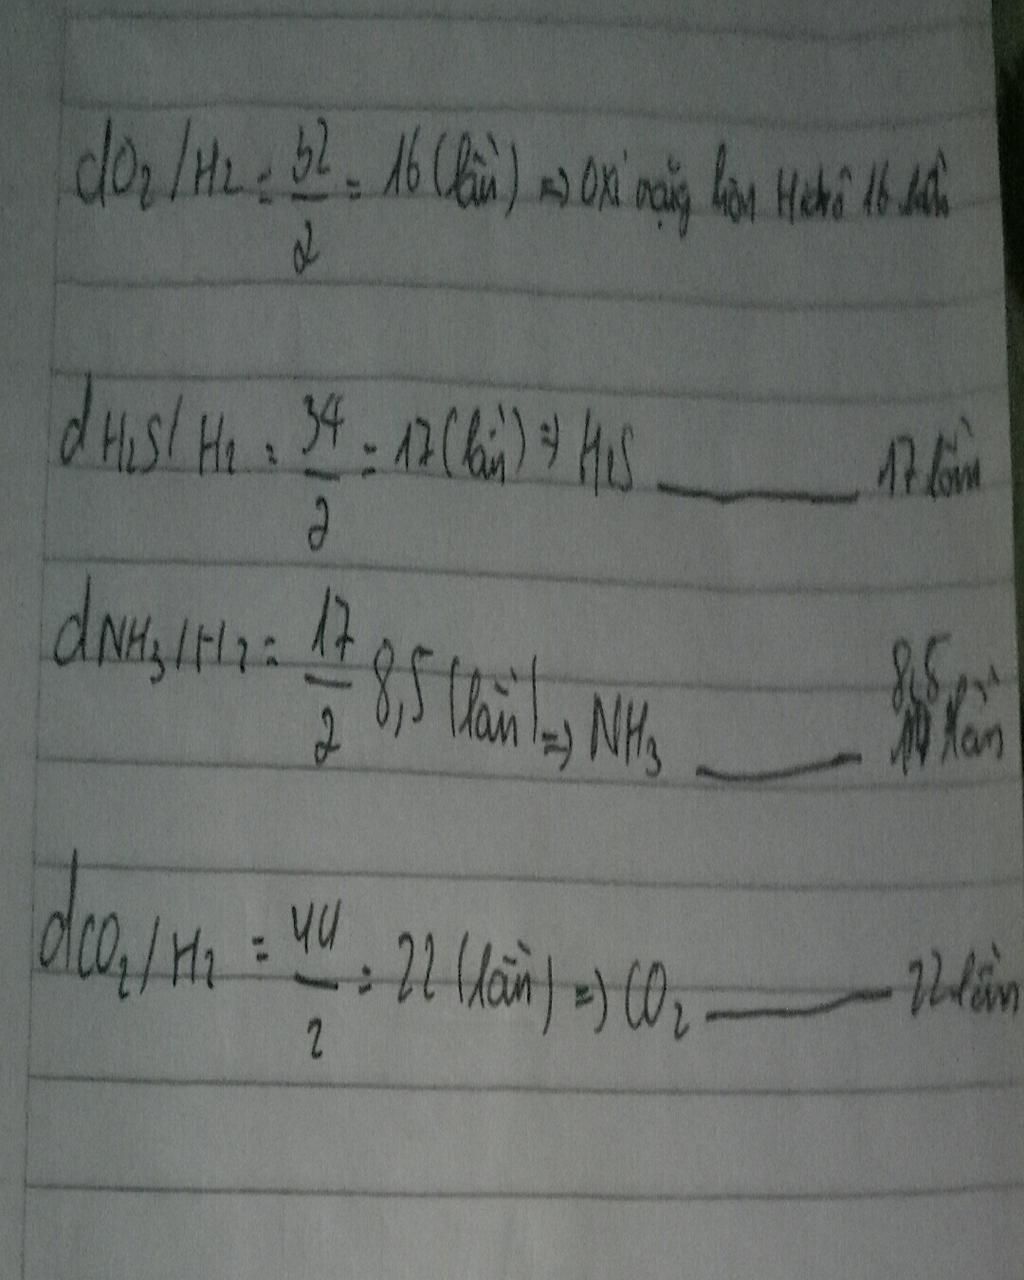 dO₂/H₂ = 32/2 = 16 (lần) => Oxi nặng hơn Hiđrô 16 lần
dH₂S/H₂ = 34/2 = 17 (lần) => H₂S ——— 17 lần
dNH₃/H₂ = 17/2 8,5 (lần) => NH₃ ——— 8,5 lần
dCO₂/H₂ = 44/2 = 22 (lần) => CO₂ ——— 22 lần